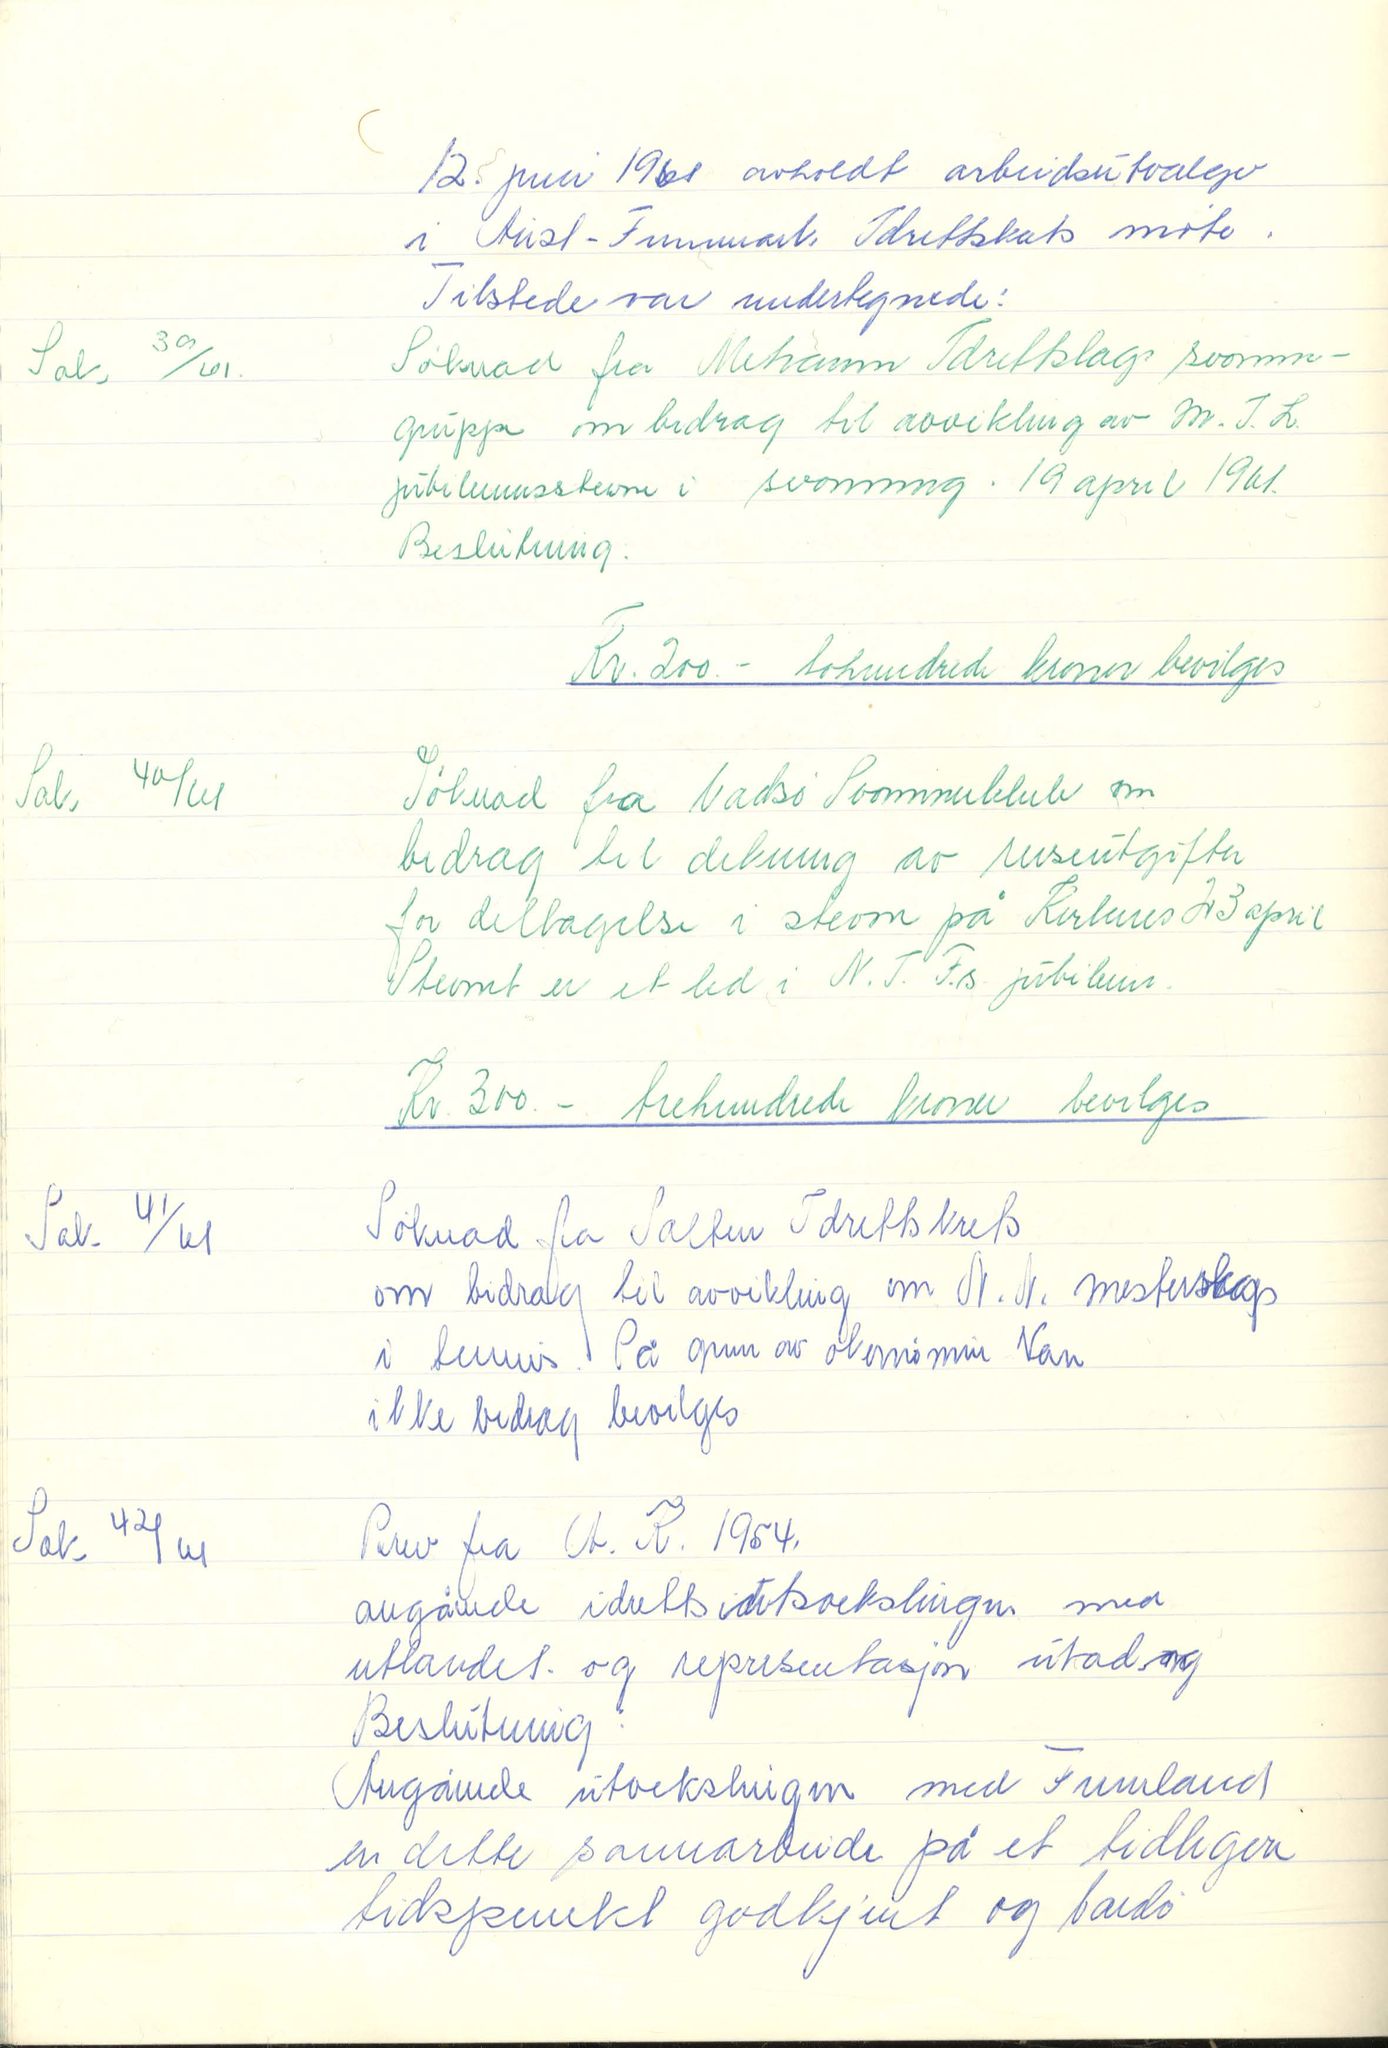 12. juni 1961 avholdt arbeidsutvalge
i Aust-Finnmark Idrettskets møte.
Tilstede var undertegnede:
Sak 39/61. Søknad fra Mehamn Idrettslags svømme-
gruppe om bidrag til avvikling av M.I.L.
jubileumsstevne i svømming. 19 april 1961.
Beslutning.
Kr. 200.- tohundrede kroner bevilges
Sak 40/61 Søknad fra Vadsø Svømmeklub om
bidrag til dekning av reiseutgifter
for deltagelse i stevne på Kirkenes 23 april
Stevnet er et led i N.I.F.s. jubileum.
Kr. 300.- trehundrede kroner bevilges
Sak 41/61 Søknad fra Salten Idrettskrets
om bidrag til avvikling om N.N. mesterskap
i tennis. På grun av økonomien kan
ikke bidrag bevilges
Sak 42/61 Brev fra A.K. 1954.
angående idrettsutvekslingen med
utlandet og representasjon utad og
Beslutning:
Angående utvekslingen med Finnland
er dette samarbeide på et tidligere
tidspunkt godkjent og